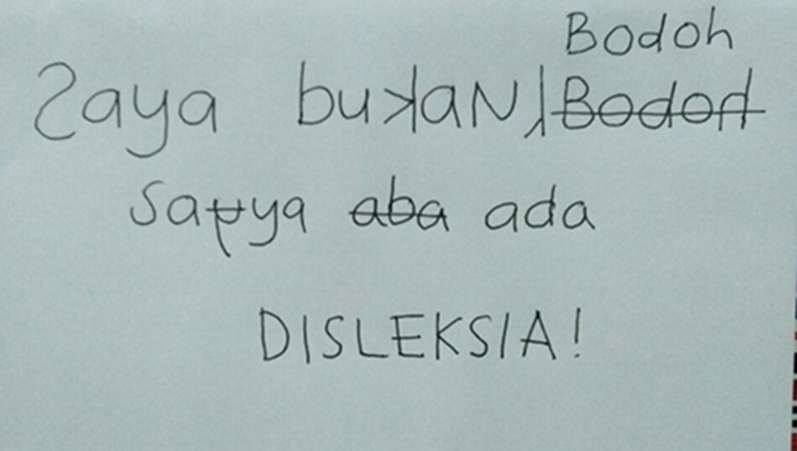 Bodoh
Saya bukaN Bodod
Saya aba ada
DISLEKSIA!